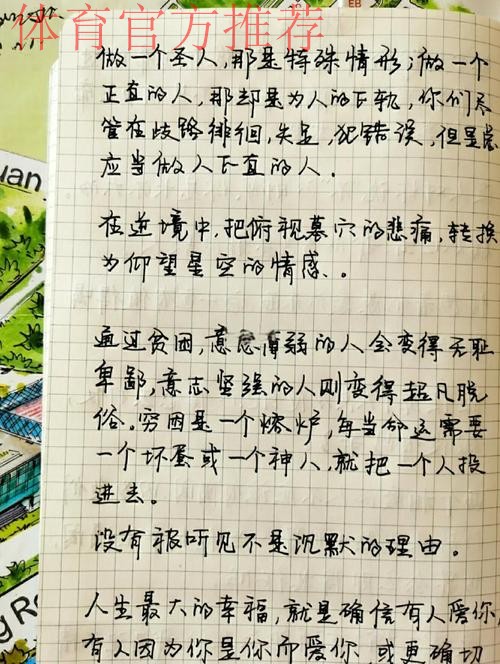 体育官方推荐
EB
做一个圣人,那是特殊情形;做一个
正直的人,那却是为人的正轨,你们尽
管在歧路徘徊,失足,犯错误,但是总
应当做个正直的人.
在逆境中,把俯视墓穴的悲痛,转换
为仰望星空的情感。
uan
通过贫困,意志薄弱的人会变得无耻
卑鄙,意志坚强的人则变得超凡脱
俗。穷困是一个熔炉,每当命运需要
一个坏蛋或一个神人,就把一个人投
进去。
没有被听见不是沉默的理由。
人生最大的幸福,就是确信有人爱你,
有人因为你是你而爱你,或更确切
g Ro